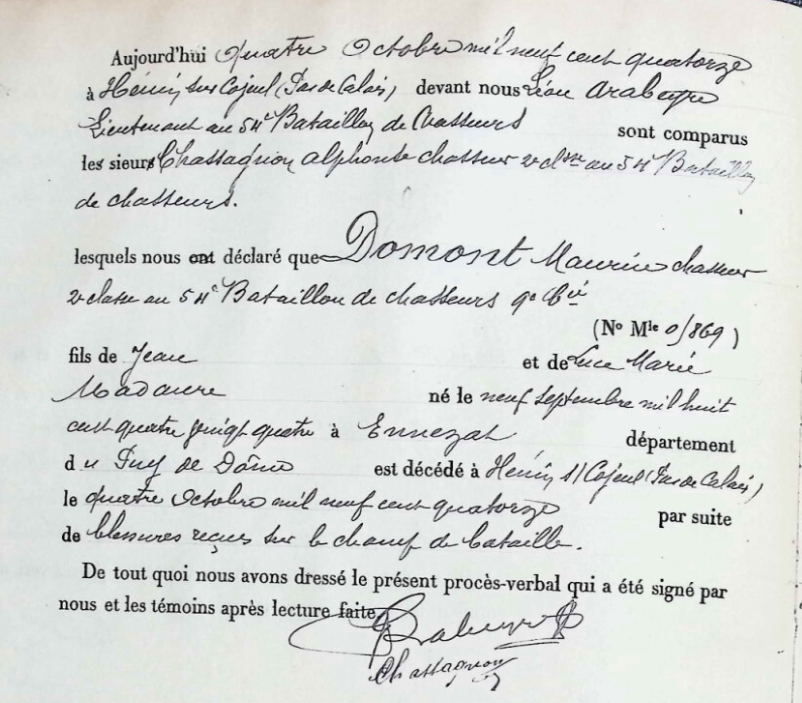 Aujourd'hui Quatre Octobre mil neuf cent quatorze
à Hénin sur Cojeul (Pas de Calais) devant nous Léon Arabeyre
Lieutenant au 54e Bataillon de Chasseurs sont comparus
les sieurs Chassagnon Alphonse chasseur 2e clsse au 54e Bataillon
de chasseurs.
lesquels nous ont déclaré que Domont Maurice chasseur
2e classe au 54e Bataillon de chasseurs 9e Cie
(No Mle 0/869)
fils de Jean et de Luce Marie
né le neuf septembre mil huit
cent quatre vingt quatre à Ennezat département
du Puy de Dôme est décédé à Hénin s/ Cojeul (Pas de Calais)
le quatre Octobre mil neuf cent quatorze par suite
de blessures reçues sur le champ de bataille.
De tout quoi nous avons dressé le présent procès-verbal qui a été signé par
nous et les témoins après lecture faite.
Chassagnon